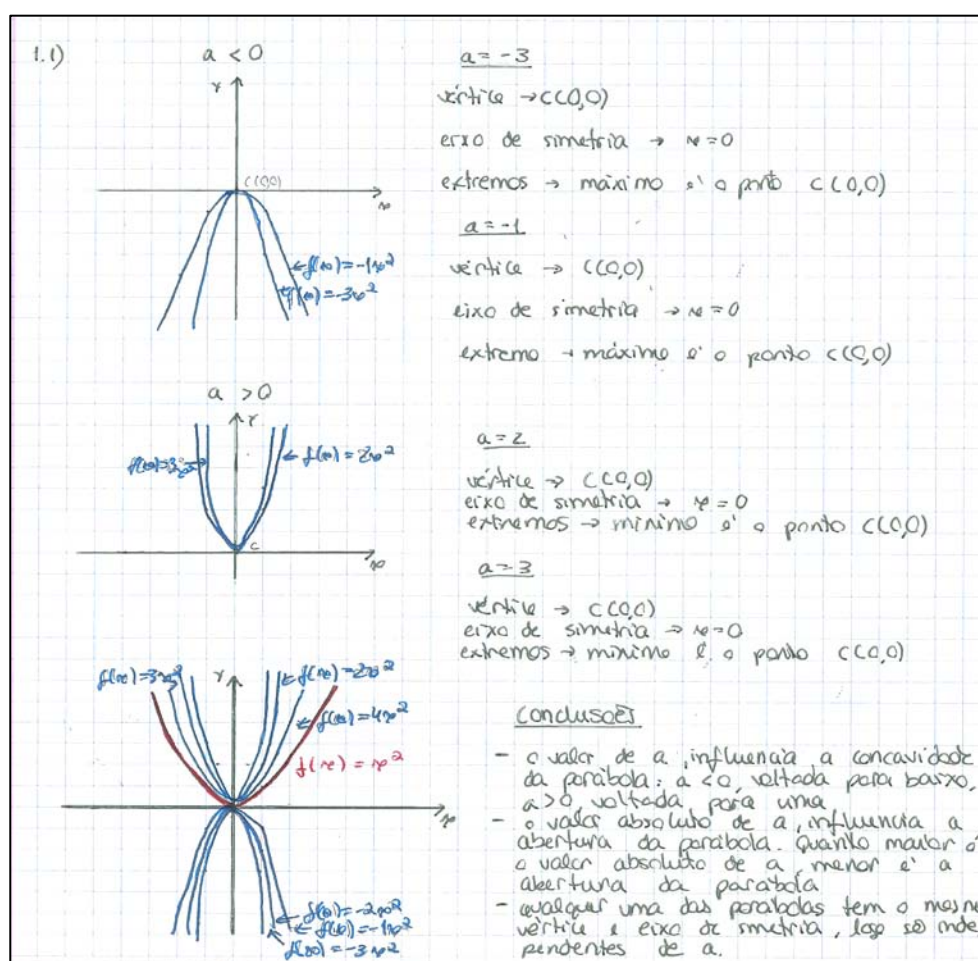 1.1)
a < 0
y
C(0,0)
x
← f(x) = -1x²
← f(x) = -3x²
a = -3
vértice → C(0,0)
eixo de simetria → x = 0
extremos → máximo é o ponto C(0,0)
a = -1
vértice → C(0,0)
eixo de simetria → x = 0
extremo → máximo é o ponto C(0,0)
a > 0
y
f(x) = 3x²
← f(x) = 2x²
C
x
a = 2
vértice → C(0,0)
eixo de simetria → x = 0
extremos → mínimo é o ponto C(0,0)
a = 3
vértice → C(0,0)
eixo de simetria → x = 0
extremos → mínimo é o ponto C(0,0)
f(x) = 3x²
y
← f(x) = 2x²
← f(x) = 4x²
f(x) = x²
x
← f(x) = -2x²
← f(x) = -1x²
f(x) = -3x²
Conclusões
- o valor de a, influencia a concavidade
da parábola: a < 0, voltada para baixo,
a > 0, voltada para uma
- o valor absoluto de a, influencia a
abertura da parábola. Quanto maior é
o valor absoluto de a, menor é a
abertura da parábola
- qualquer uma das parábolas tem o mesmo
vértice e eixo de simetria, logo são inde
pendentes de a.